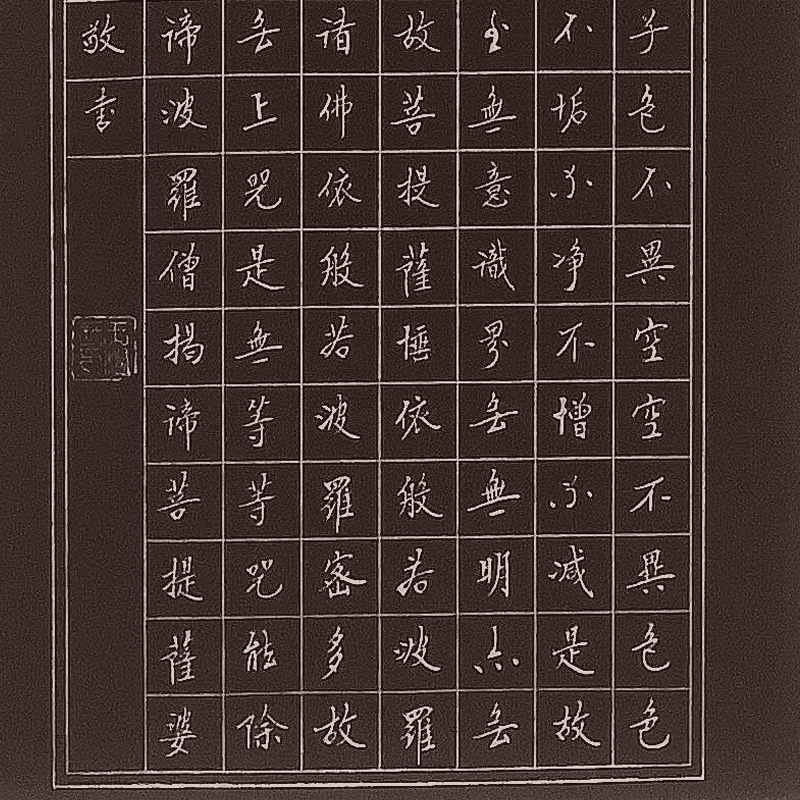 子色不異空空不異色色
不垢不净不增不减是故
至無意識界无無明亦无
故菩提薩埵依般若波羅
诸佛依般若波羅密多故
无上咒是無等等咒能除
谛波羅僧揭谛菩提薩婆
敬書